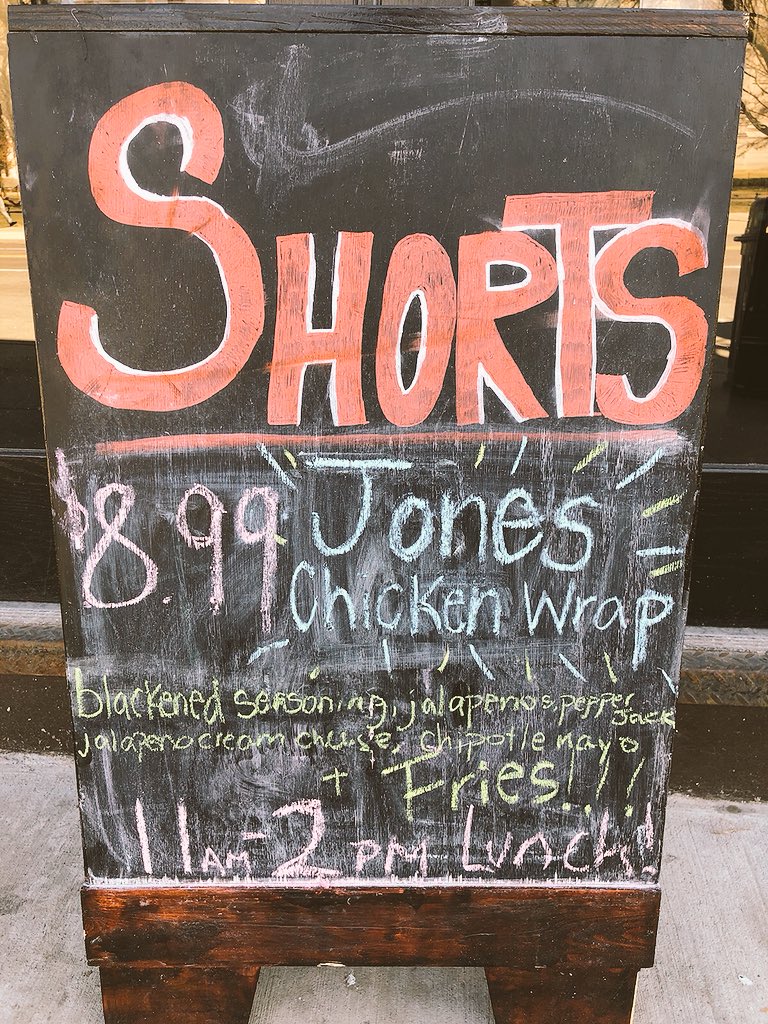 SHORTS
$8.99 Jones
Chicken Wrap
blackened seasoning, jalapenos, pepper Jack
jalapeno cream cheese, chipotle mayo
+ Fries!!!
11AM-2PM Lunch!